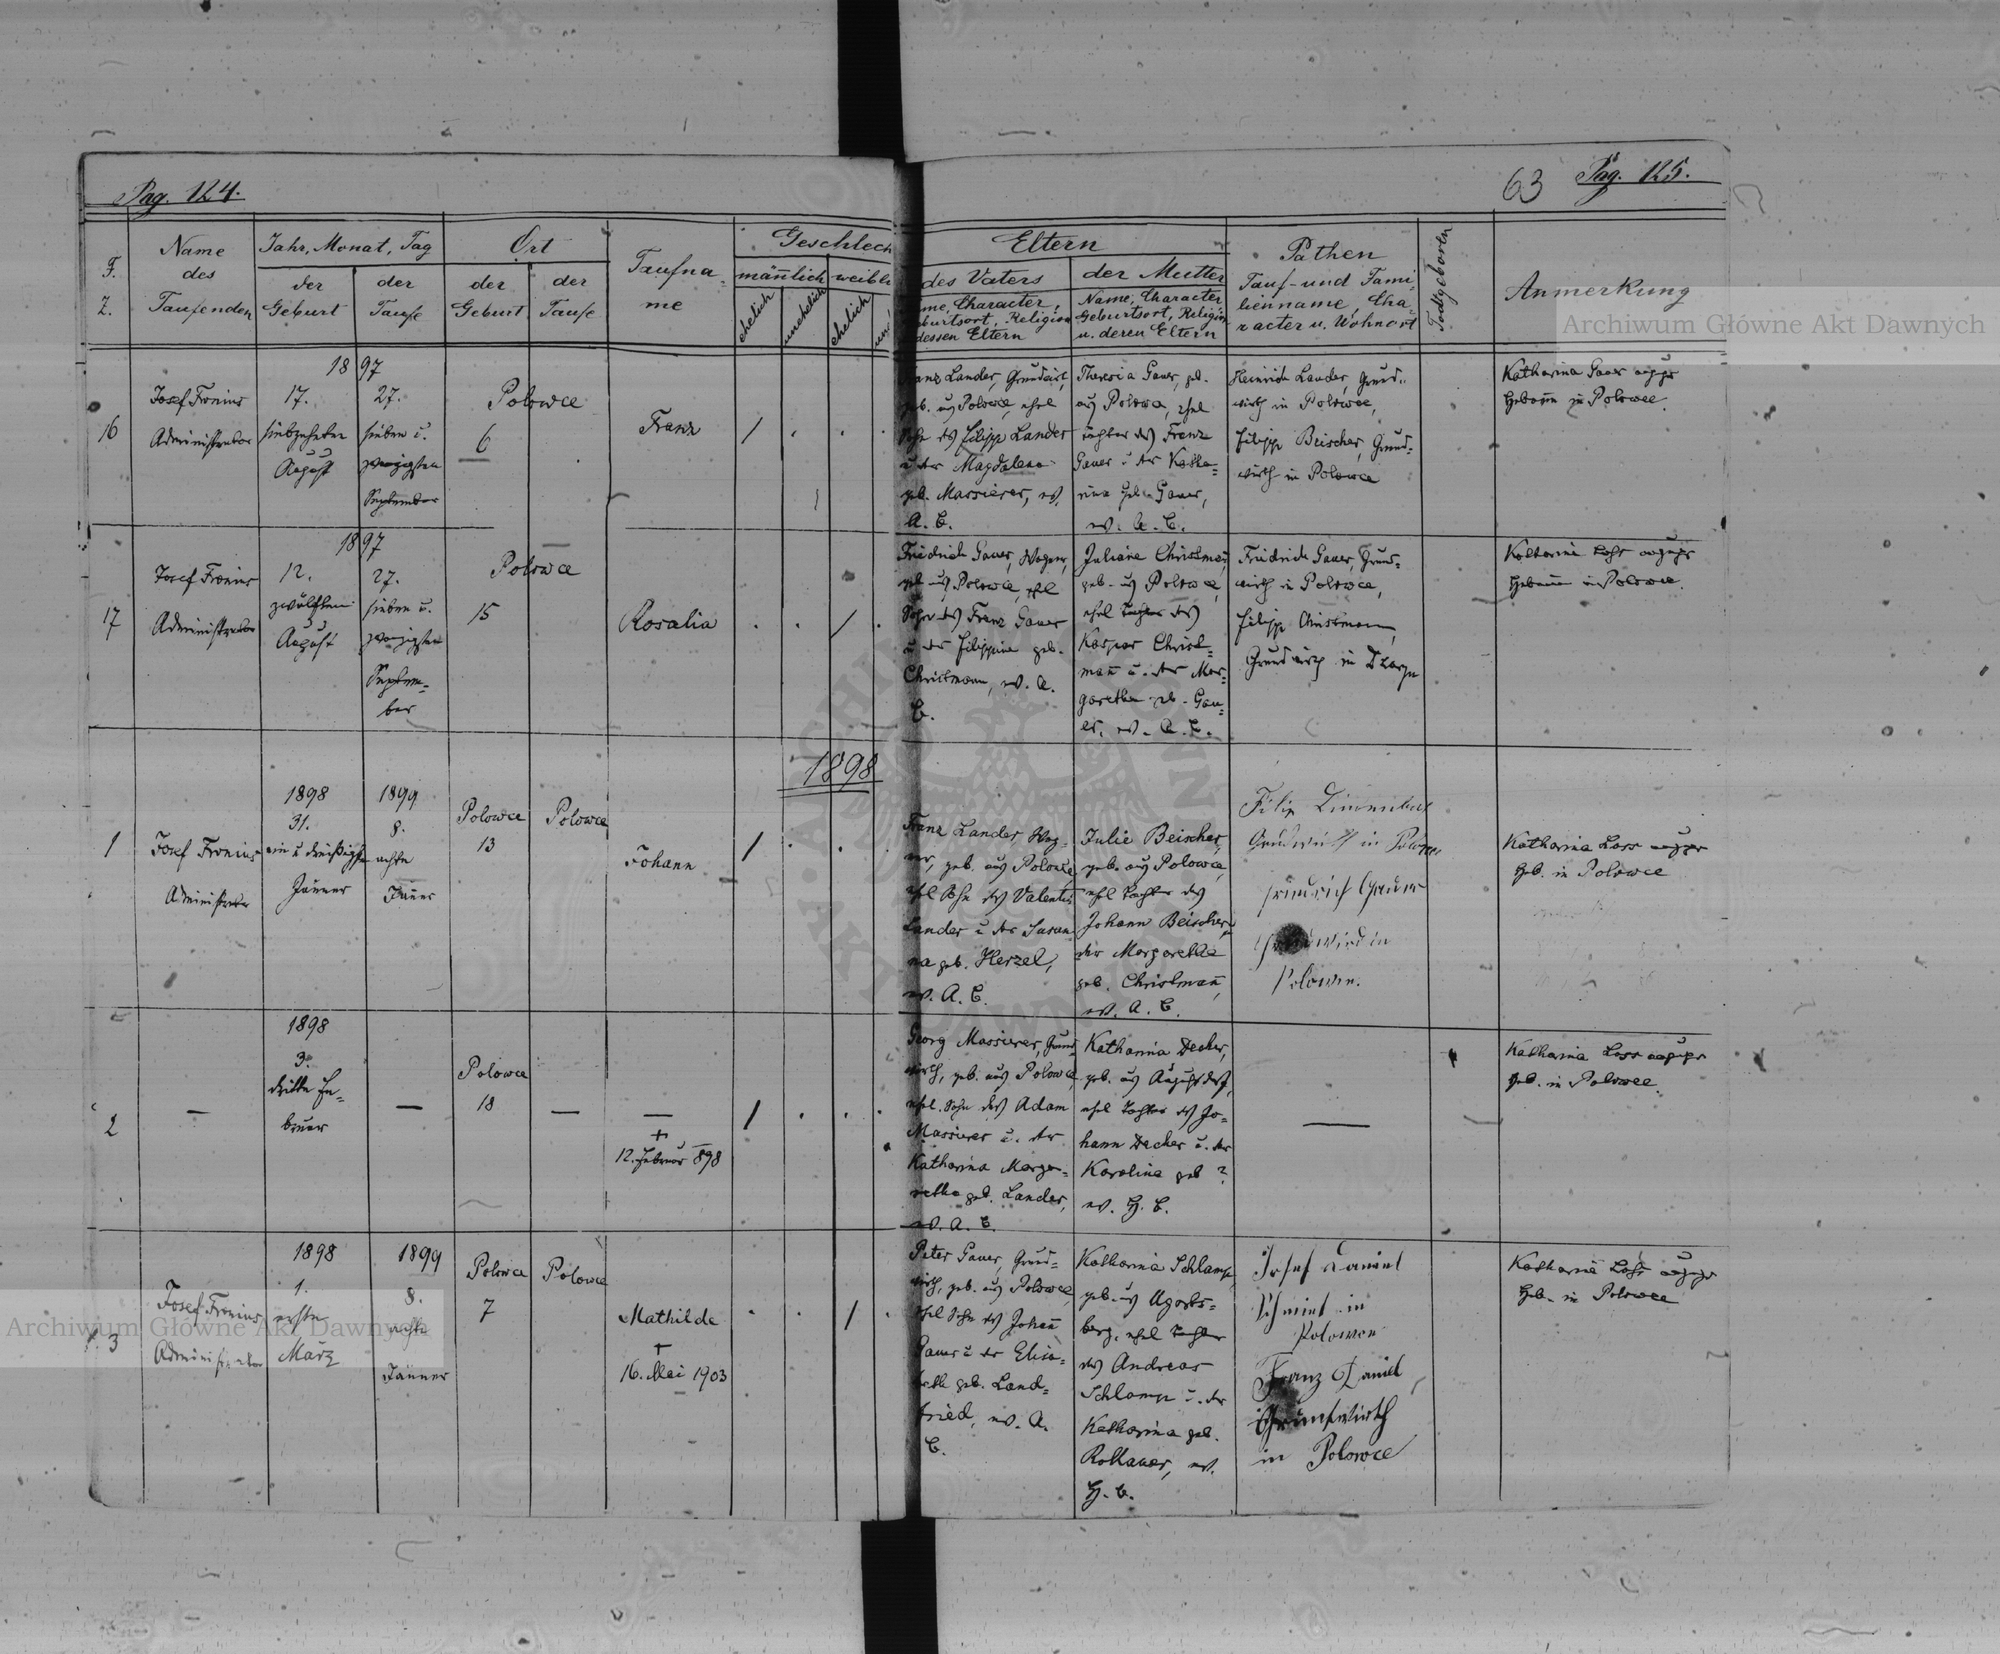 Pag. 124.
63 Pag. 125.
F. Z.
Name des Taufenden
Jahr, Monat, Tag
der Geburt
der Taufe
Ort
der Geburt
der Taufe
Taufna-
me
Geschlech
männlich
weibl
ehelich
unehelich
ehelich
Eltern
des Vaters
Character,
burtsort, Religion
dessen Eltern
der Mutter
Name, Character
Geburtsort, Religion
u. deren Eltern
Pathen
Tauf- und Fami-
lienname, Cha-
racter u. Wohnort
Todtgeboren
Anmerkung
Archiwum Główne Akt Dawnych
16
Josef Fronius
Administrator
1897
17.
siebzehnten
August
27.
sieben u.
zwanzigsten
September
Polowce
6
Franz
Lander, Grundwirt,
geb. aus Polowce, ehel
Sohn des Filipp Lander
u der Magdalena
geb. Massierer, ev.
A. C.
Theresia Gauer, geb.
aus Polowce, ehel
Tochter des Franz
Gauer u der Katha-
rina geb. Gauer,
ev. A. C.
Heinrich Lander, Grund-
wirth in Polowce,
Filipp Beischer, Grund-
wirth in Polowce
Katharina Gauer
Hebamme in Polowce.
17
Josef Fronius
Administrator
1897
12.
zwölften
August
27.
sieben u.
zwanzigsten
Septem-
ber
Polowce
15
Rosalia
Friedrich Gauer, Wagner,
geb aus Polowce, ehel
Sohn des Franz Gauer
u der Filippine geb.
Christmann, ev. A.
C.
Juliane Christmann,
geb. aus Polowce,
ehel Tochter des
Kaspar Christ-
mann u. der Mar-
garetha geb. Gau-
er, ev. A. C.
Friedrich Gauer, Grund-
wirth in Polowce,
Filipp Christmann,
Grundwirth in
Katharina Loss
Hebamme in Polowce.
1898
1
Josef Fronius
Administrator
1898
31.
ein u dreißigste
Jänner
1899
8.
achte
Jänner
Polowce
13
Polowce
Johann
Franz Lander, Wag-
ner, geb. aus Polowce,
ehel Sohn des Valentin
Lander u der Susan-
na geb. Herzel,
ev. A. C.
Julie Beischer,
geb. aus Polowce,
ehel Tochter des
Johann Beischer u
der Margaretha
geb. Christmann,
ev. A. C.
Filip
Grundwirth in Polowce
Friedrich Gauer
Grundwird in
Polowce.
Katharina Loss
Heb. in Polowce
2
1898
3.
dritte Fe-
bruar
Polowce
18
+
12. Februar 898
Georg Massierer, Grund-
wirth, geb. aus Polowce,
ehel. Sohn des Adam
Massierer u. der
Katharina Marga-
retha geb. Lander,
ev. A. C.
Katharina Decher,
geb. aus Augustdorf,
ehel Tochter des Jo-
hann Decher u. der
Karolina geb ?
ev. H. C.
Katharina Loss
Heb. in Polowce.
3
Josef Fronius
Administrator
1898
1.
erste
März
1899
8.
achte
Jänner
Polowce
7
Polowce
Mathilde
+
16. Mai 1903
Peter Gauer, Grund-
wirth, geb. aus Polowce,
ehel Sohn des Johann
Gauer u der Elisa-
beth geb. Land-
fried, ev. A.
C.
Katharina Schlamp,
geb. aus Ugarts-
berg, ehel Tochter
des Andreas
Schlamp u. der
Katharina geb.
Rothauer, ev.
H. C.
Josef Daniel
Schmied in
Polowce
Franz Daniel,
Grundwirth
in Polowce
Katharina Loss
Heb. in Polowce
Archiwum Główne Akt Dawnych